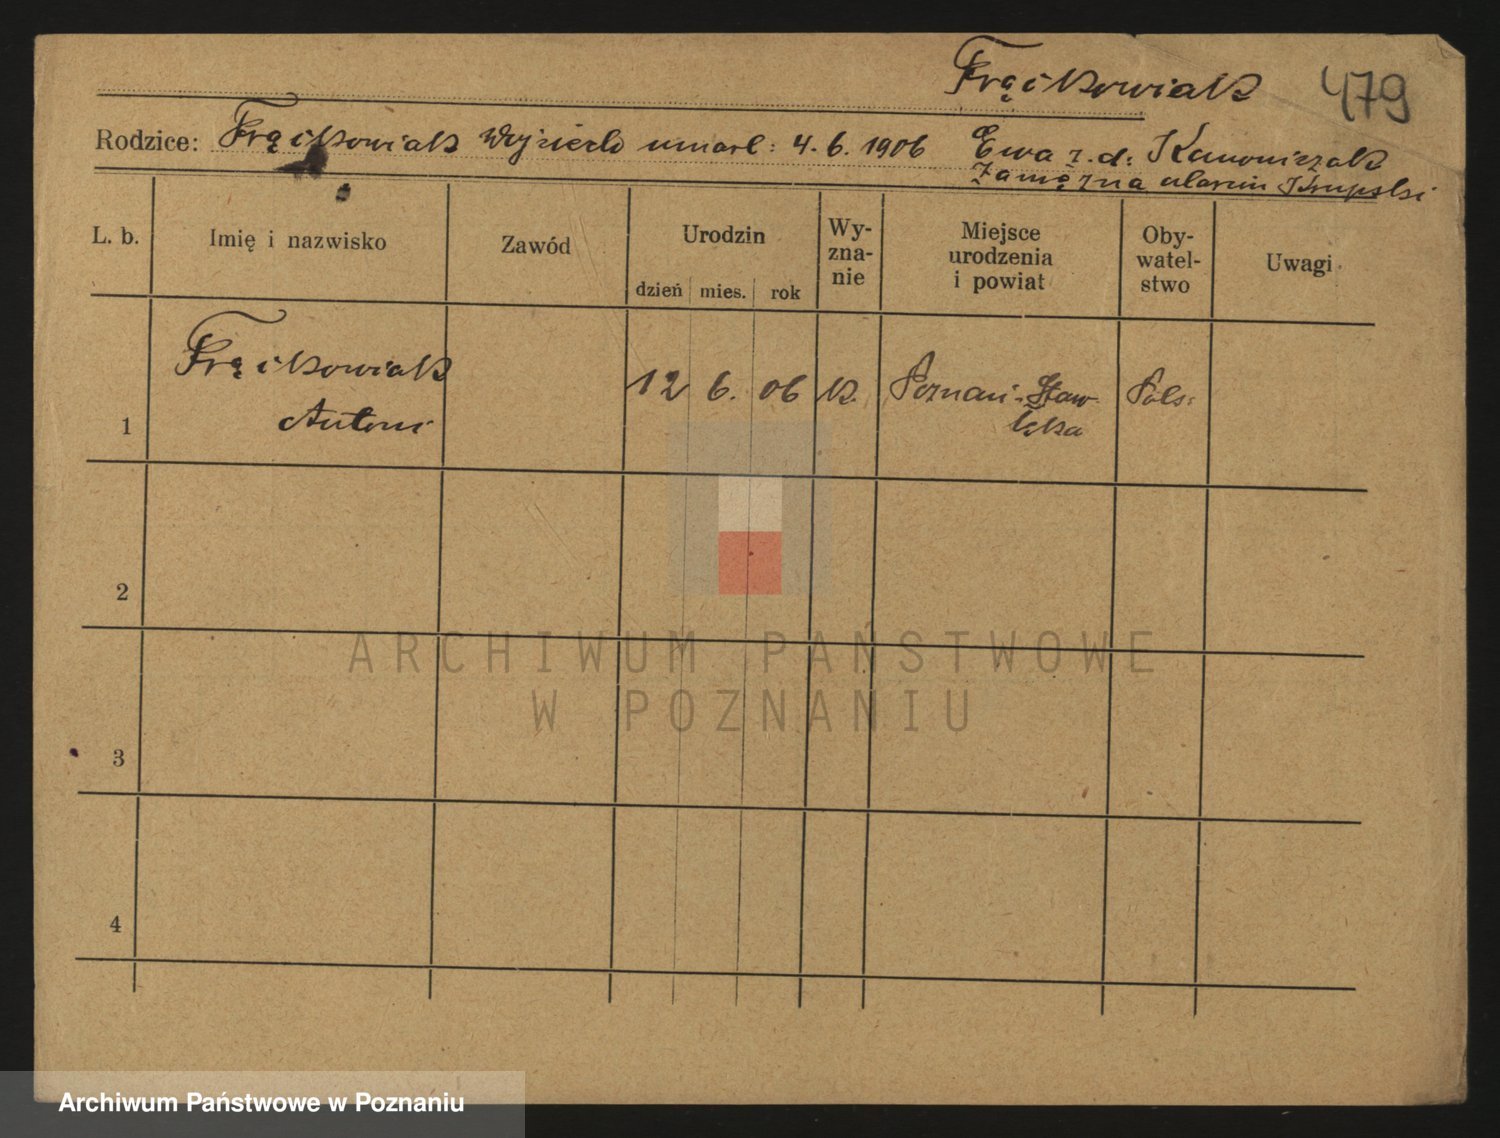 Frąckowiak 479
Rodzice: Frąckowiak Wojciech umarł: 4. 6. 1906 Ewa z. d: Kanoniczak
Zamężna Krupski
L. b. Imię i nazwisko Zawód Urodzin Wy-zna-nie Miejsce urodzenia i powiat Oby-watel-stwo Uwagi
dzień mies. rok
Frąckowiak
1 Antoni 12 6. 06 k. Poznań - Staw- Pols:
2
3
4
ARCHIWUM PAŃSTWOWE
W POZNANIU
Archiwum Państwowe w Poznaniu